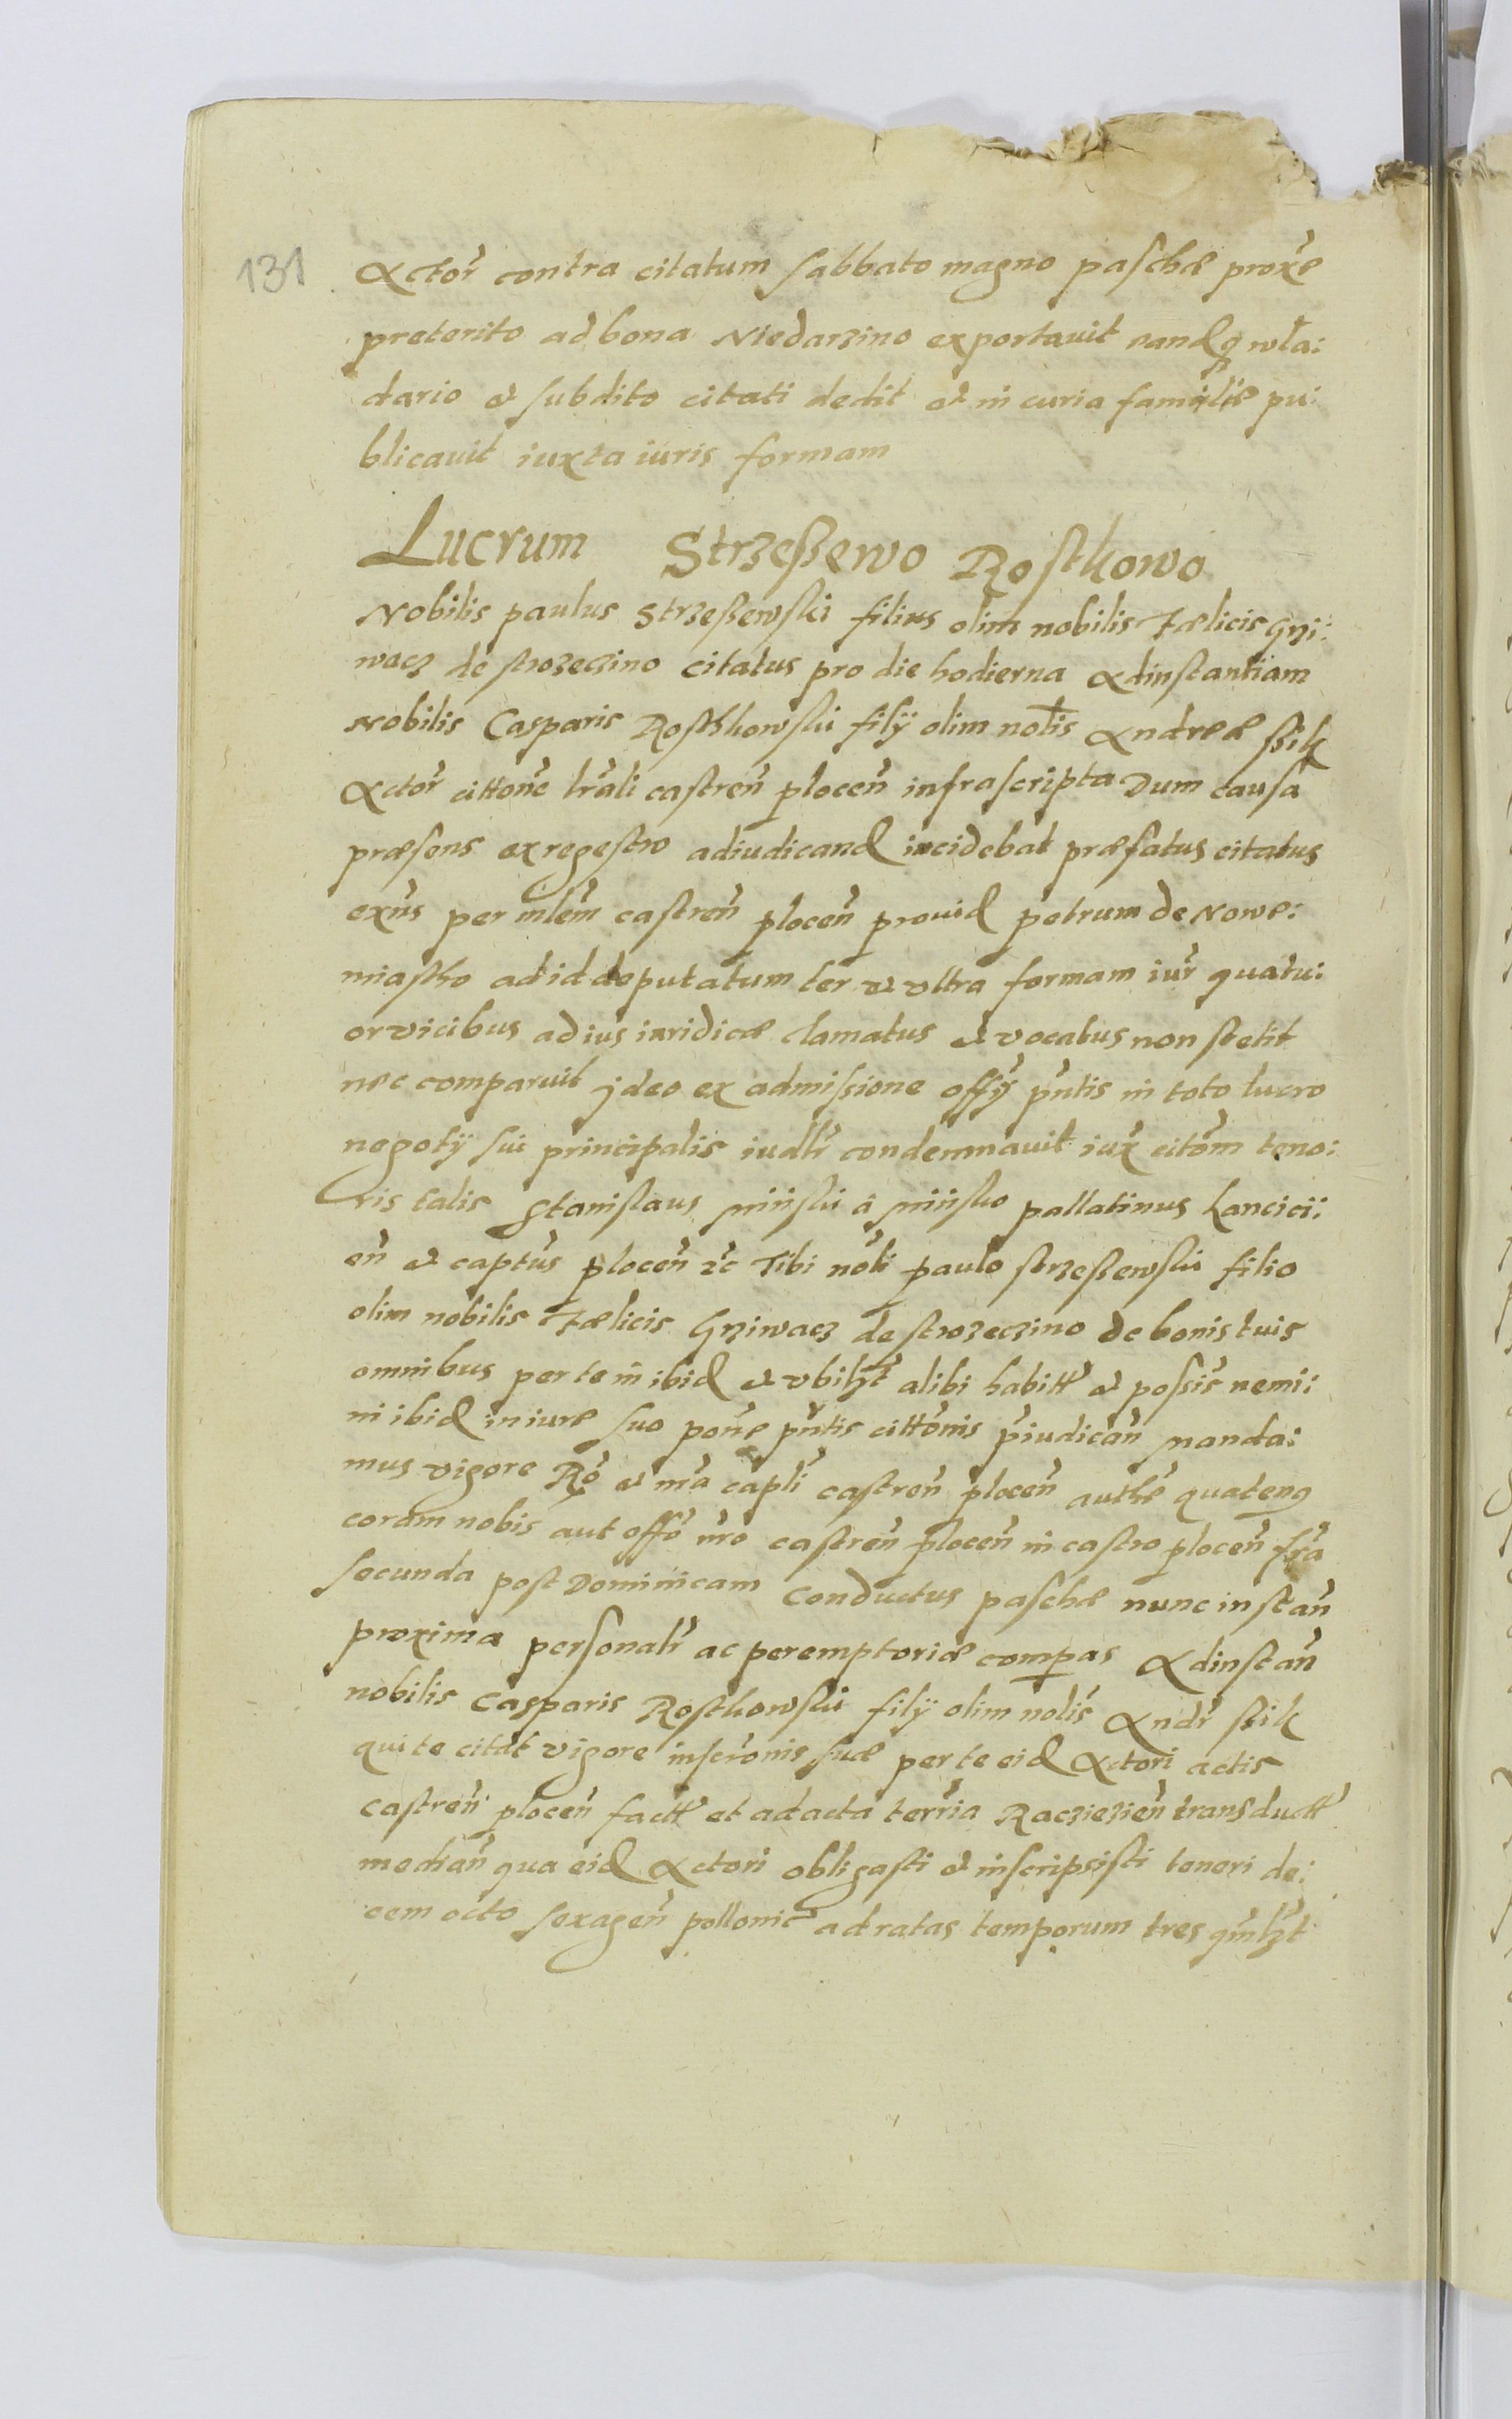 131
Actor̃ contra citatum sabbato magno paschæ proxẽ
preterito ad bona Niedarzino exportavit eandq̃ wła:
dario et subdito citati dedit et in curia familiæ pu:
blicavit iuxta iuris formam
Lucrum Strzeßewo Rosthowo
Nobilis paulus Strzeßewski filius olim nobilis Fælicis Grzi:
wacz de strozeczino citatus pro die hodierna Adinstantiam
Nobilis Casparis Rosthkowski filÿ olim nolis Andreæ ßik
Actor̃ cittone lr̃ali castren̄ plocen̄ infrascripta Dum causa
præsens ex regestro adiudicand incidebat præfatus citatus
exn̄s per mlem castren̄ plocen̄ provid petrum de Nowe:
miastho ad id deputatum ter et ultra formam iur̃ quatu:
or vicibus ad ius iuridicæ clamatus et vocatus non stetit
nec comparuit jdeo ex admissione offÿ pn̄tis in toto lucro
negotÿ sui principalis iudlr̃ condemnavit iux̃ citom̄ teno:
ris talis Stanislaus Miński a Mińsko pallatinus Lancici:
en̄ et captus plocen̄ zc̃ Tibi nobli paulo strzeßewski filio
olim nobilis Fælicis Grziwacz de strozeczino de bonis tuis
omnibus per te in ibid et ubilzt alibi habitt et possis nemi:
ni ibid in iure suo pone pn̄tis cittonis p̃iudican̄ manda:
mus vigore Ro et nr̃a capli castren̄ plocen̄ authe quateng
coram nobis aut offo nr̃o castren̄ plocen̄ in castro plocen̄ fr̃a
secunda post Dominicam Conductus paschæ nunc instan̄
proxima personalr̃ ac peremptoriæ compas Adinstan̄
nobilis Casparis Rosthowski filÿ olim nolis Andr̃ ßik
qui te citat vigore inscronis suæ per te eid Actori actis
castren̄ plocen̄ factt et ad acta terr̃ia Racziezien̄ transductt
median̄ qua eid Actori obligasti et inscripsisti teneri de:
cem octo sexagen̄ pollonic ad ratas temporum tres qmlzt